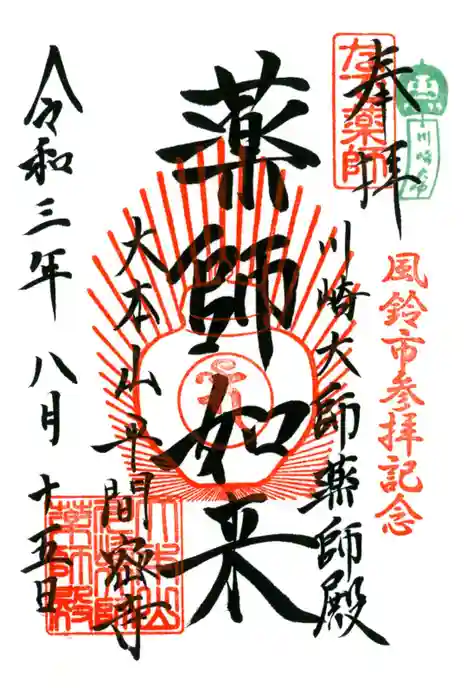 奉拝
なで薬師
川崎大師
風鈴市参拝記念
川崎大師薬師殿
薬師如来
大本山平間密寺
令和三年八月十五日